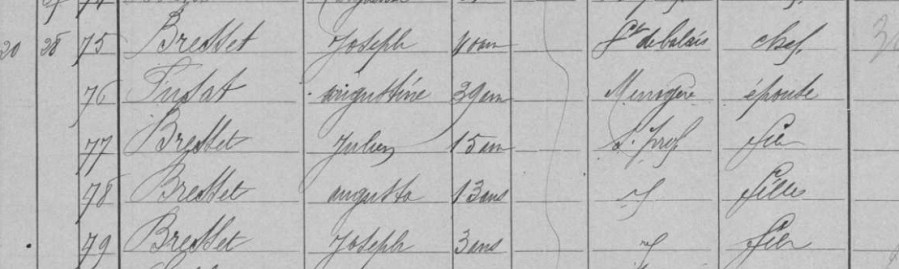 20 28 75 Bresset Joseph 40 ans Ft de balais chef
76 Fusat augustine 39 ans Menagère épouse
77 Bresset Julien 15 ans S. prof fils
78 Bresset augusta 13 ans fille
79 Bresset Joseph 3 ans fils